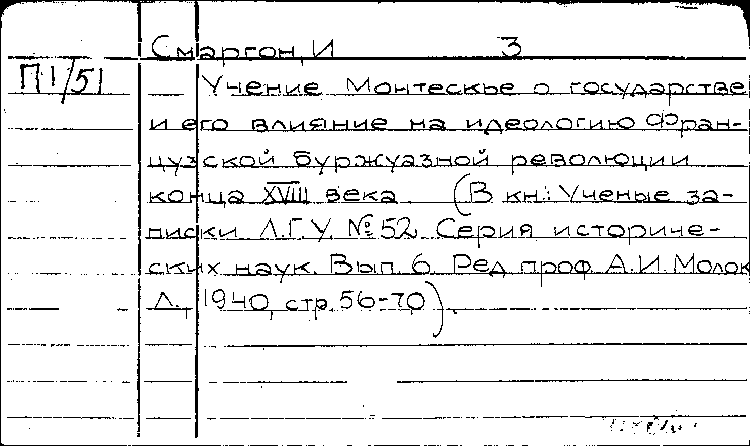 Смаргон, И 3
П1/51 — Учение Монтескье о государстве
и его влияние на идеологию Фран-
цузской буржуазной революции
конца XVIII века. (В кн.: Ученые за-
писки Л.Г.У. № 52. Серия историче-
ских наук. Вып. 6. Ред. проф. А.И. Молок
Л., 1940, стр. 56-70).